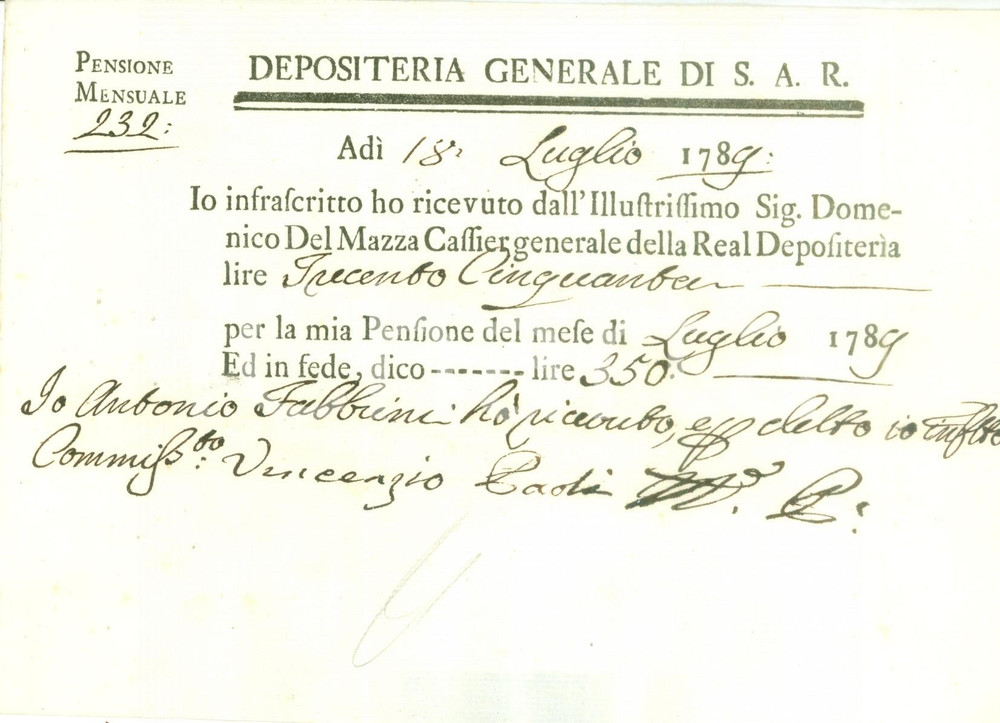 PENSIONE
MENSUALE
232:
DEPOSITERIA GENERALE DI S. A. R.
Adì 18: Luglio 1789:
Io infraſcritto ho ricevuto dall'Illuſtriſſimo Sig. Dome-
nico Del Mazza Caſſier generale della Real Depoſiterìa
lire Trecento Cinquanta
per la mia Penſione del meſe di Luglio 1789
Ed in fede, dico ------- lire 350:
Io Antonio Fabbrini hò ricevuto, e detto io
Commiss.to: Vincenzio M. P.